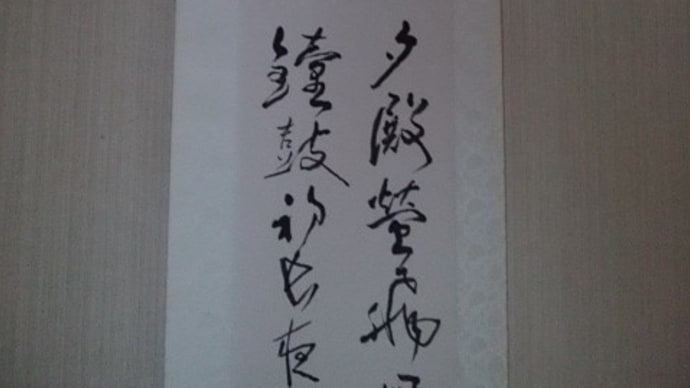 夕殿螢飛
鐘鼓初長夜